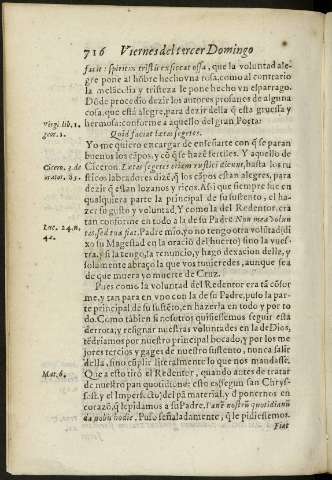 716 Viernes del tercer Domingo
facit: spiritus tristis exsiccat ossa, que la voluntad ale-
gre pone al hōbre hecho vna rosa, como al contrario
la melācolia y tristeza le pone hecho vn esparrago.
Dōde procedio dezir los autores profanos de alguna
cosa, que està alegre, para dezir q̄ esta gruessa y
hermosa: conforme a aquello del gran Poeta:
Virgi. lib. 1.
geor. 1.
Quid faciat lætas segetes.
Yo me quiero encargar de enseñarte con q̄ se paran
buenos los cāpos, y cō q̄ se hazē fertiles. Y aquello de
Ciceron. Lætas segetes etiam rustici dicunt, hasta los ru
Cicero. 3. de
orator. 83.
sticos labradores dizē, q̄ los cāpos estan alegres, para
dezir q̄ estan lozanos y ricos. Assi que siempre fue en
qualquiera parte la principal de su sustento, el ha-
zer su gusto y voluntad, Y como la del Redentor, era
tan conforme en todo a la de su Padre Non mea volun
Luc. 24. n.
42.
tas, sed tua fiat. Padre mio, yo no tengo otra volūtad (di
xo su Magestad en la oració del huerto) sino la vues-
tra, y si la tengo, la renuncio, y hago dexacion delle, y
solamente abraço la que vos tuuieredes, aunque sea
de que muera yo muerte de Cruz.
Pues como la voluntad del Redentor era tā cōfor
me, y tan para en vno con la de su Padre, puso la par-
te principal de su sustēto, en hazerla en todo y por to
do. Como tābien si nosotros quisiessemos seguir esta
derrota, y resignar nuestras voluntades en la de Dios,
tēdriamos por nuestro principal bocado, y por los me
jores tercios y gages de nuestro sustento, nunca salir
della, sino cūplir literalmente lo que nos mandasse.
Mat. 6.
Que a esto tirò el Redentor, quando antes de tratar
de nuestro pan quotidiano: esto es (segun san Chryf-
fost. y el Imperfecto) del pā material, d̄ ponernos en
coraçō, q̄ le pidamos a su Padre, Panē nostrū quotidianū
da nobis hodie. Puso señaladamente, q̄ le pidiessemos.
Fiat